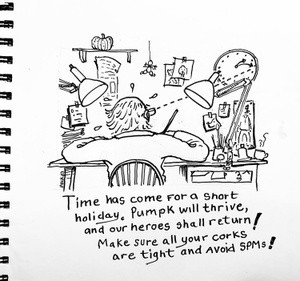 Time has come for a short
holiday. Pumpk will thrive,
and our heroes shall return!
Make sure all your corks
are tight and Avoid SPMs!